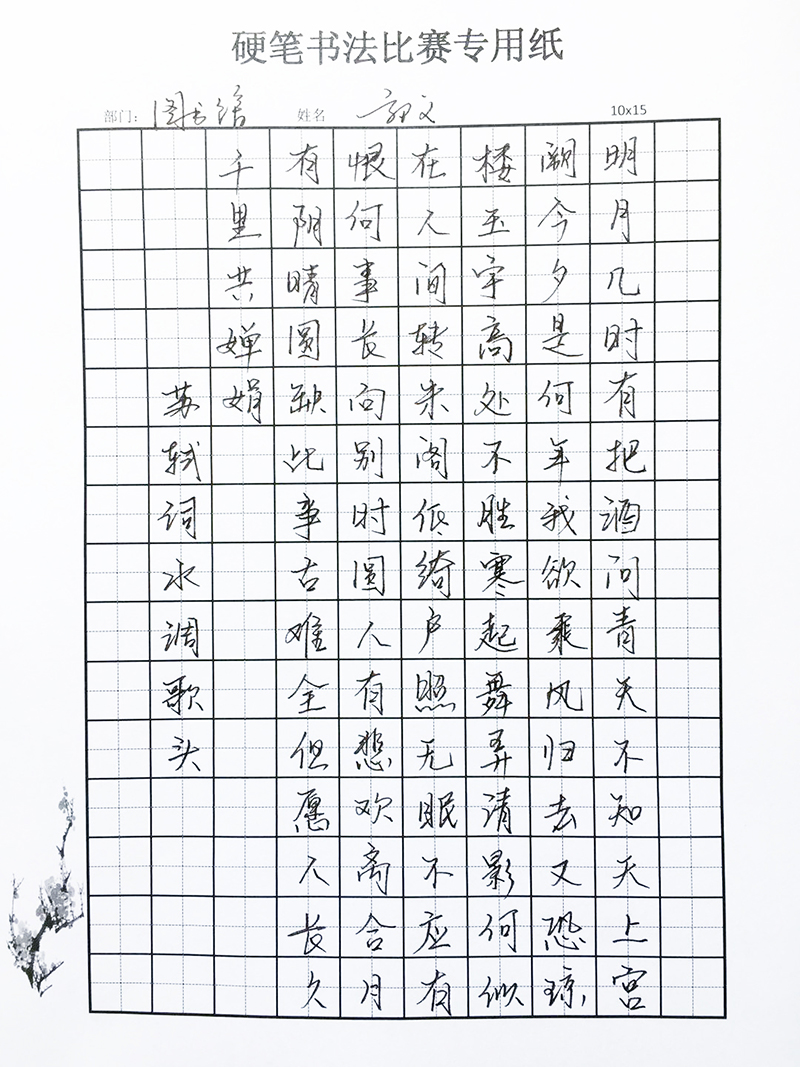 硬笔书法比赛专用纸
部门: 图书馆 姓名 文 10x15
明月几时有把酒问青天不知天上宫
阙今夕是何年我欲乘风归去又恐琼
楼玉宇高处不胜寒起舞弄清影何似
在人间转朱阁低绮户照无眠不应有
恨何事长向别时圆人有悲欢离合月
有阴晴圆缺此事古难全但愿人长久
千里共婵娟
苏轼词水调歌头